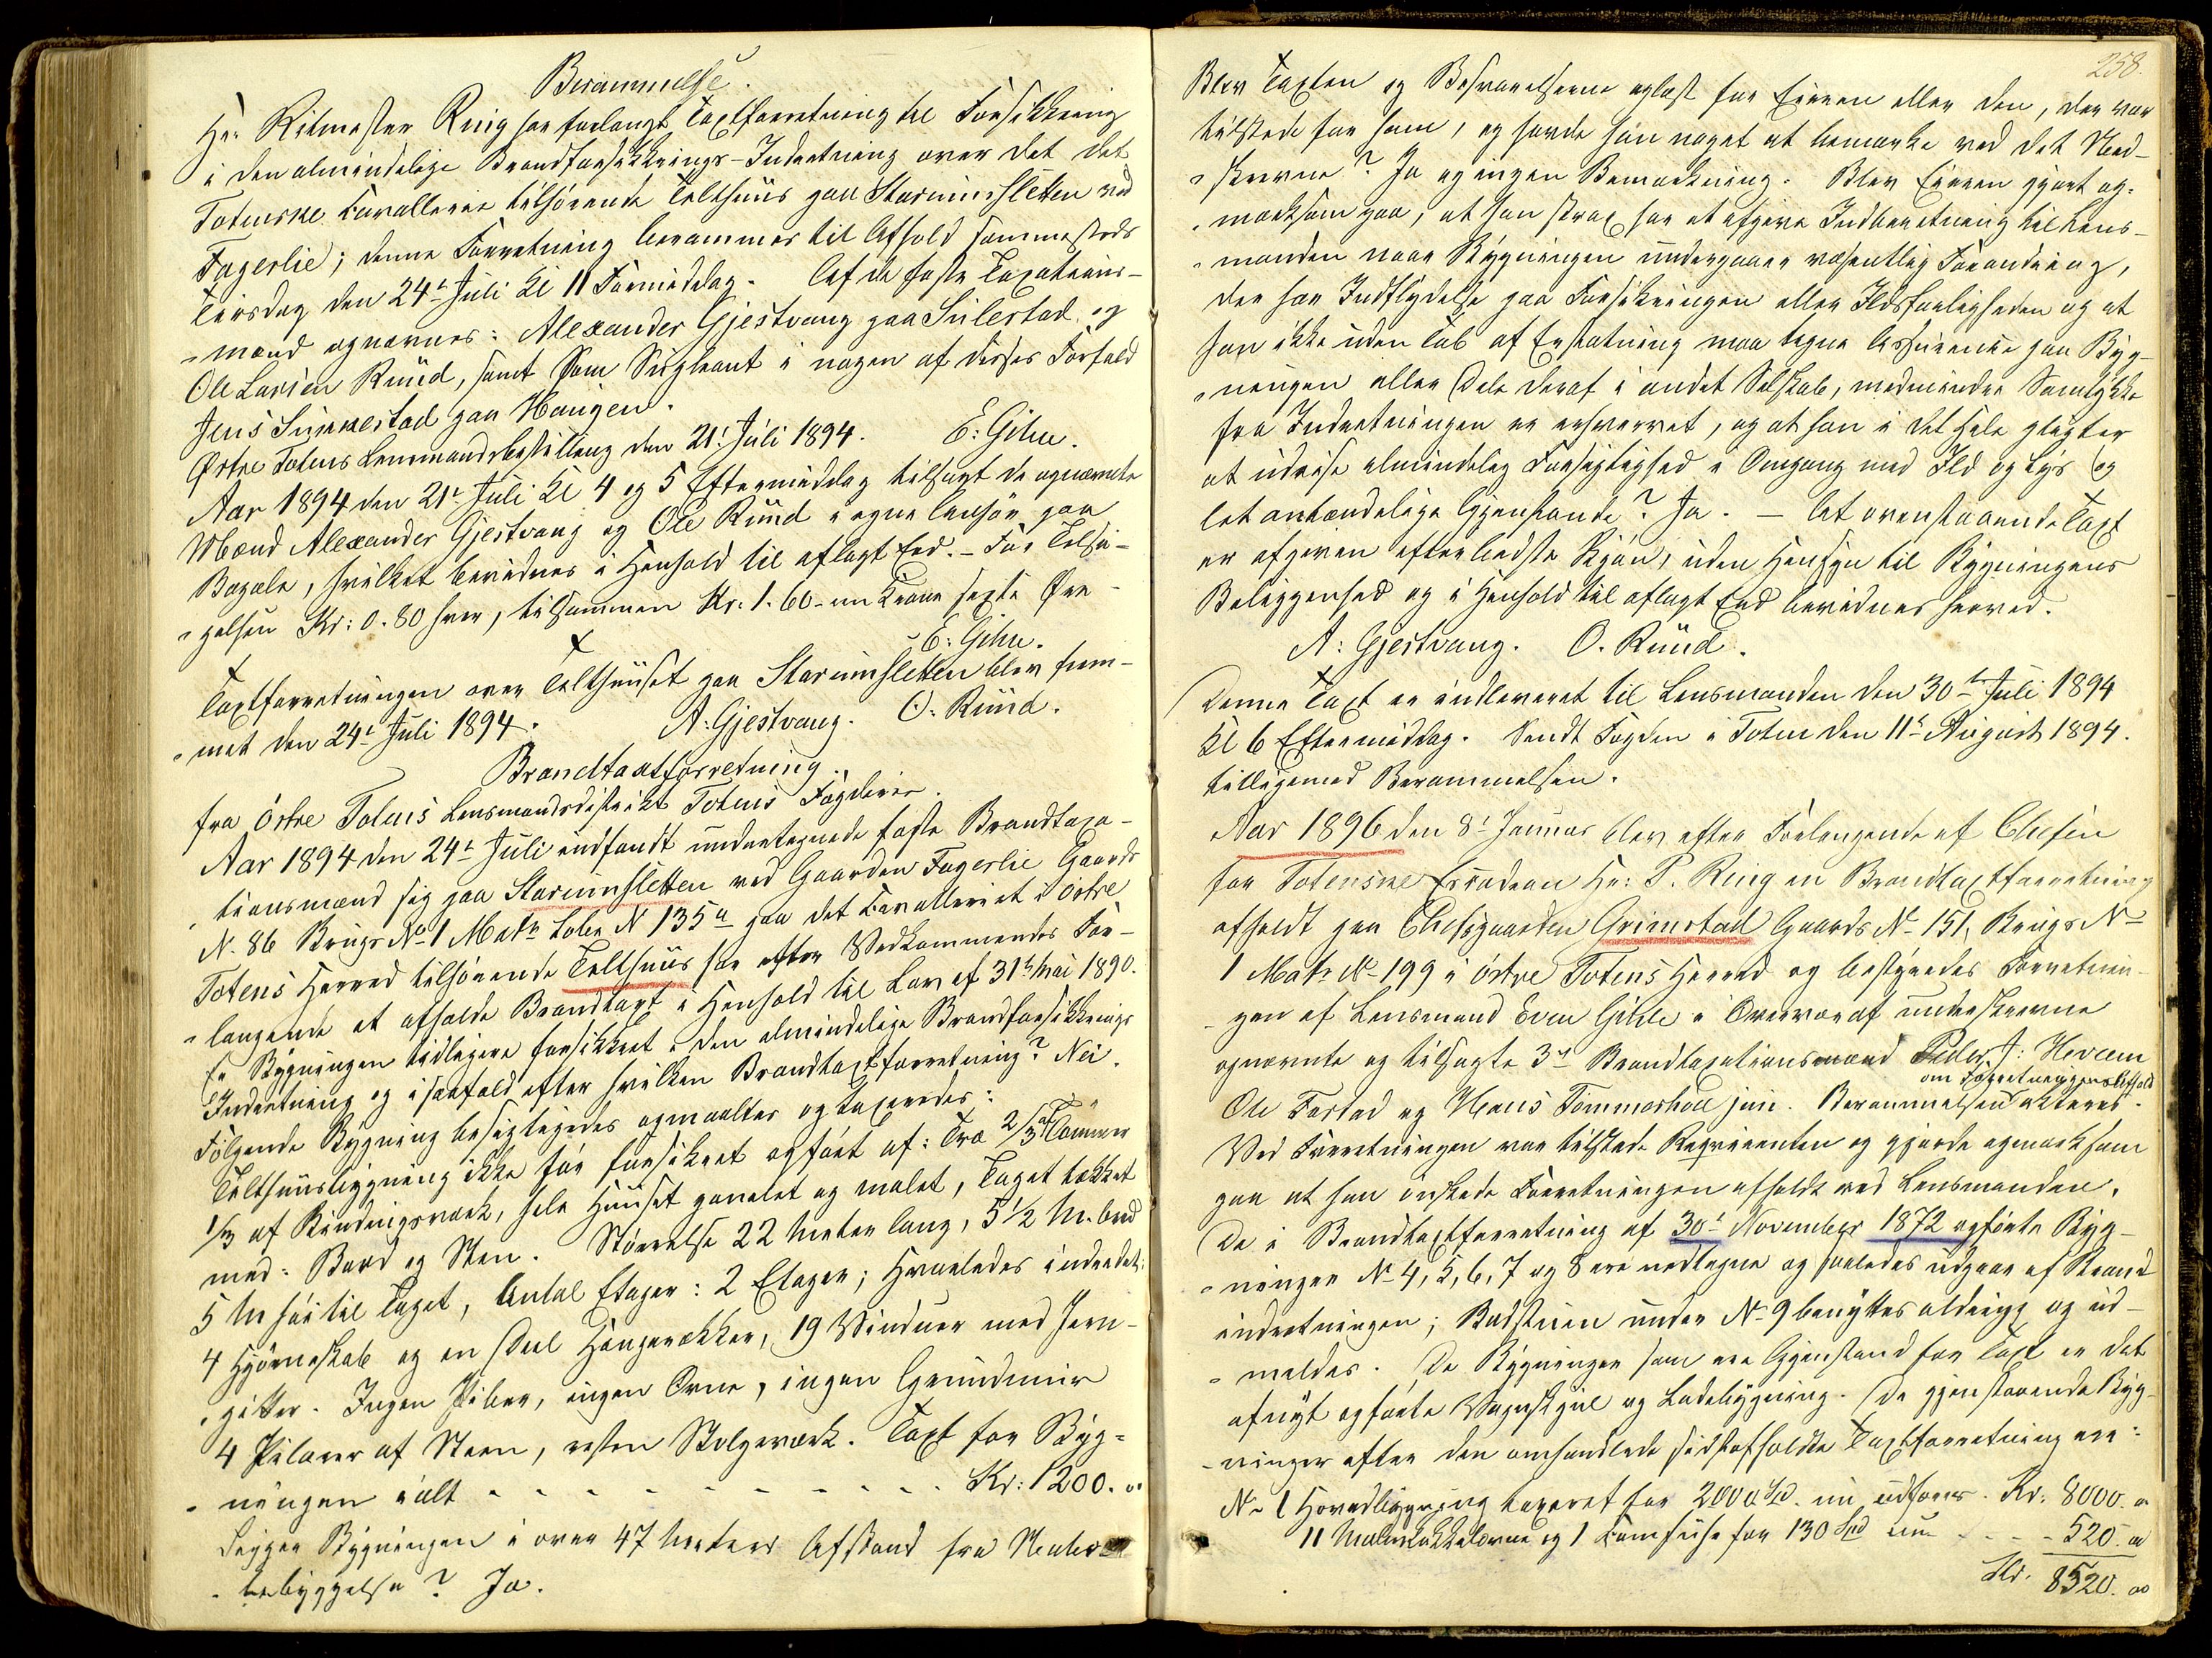 Berammelse.
Hr. Ritmester Ring har forlangt Taxtforretning til Forsikkring
i den almindelige Brandforsikkrings-Indretning over det det
Totenske Cavalleri tilhörende Telthuus paa Starumsletten ved
Fagerlie; denne Forretning berammes til Afhold sammesteds
Tirsdag den 24de Juli Kl 11 Formiddag. Af de faste Taxations-
mænd opnævnes: Alexander Gjestvang paa Sulestad og
Ole Larsen Ruud, samt som Supleant i nogen af disses Forfald
Jens Sukkestad paa Haugen.
Østre Totens Lensmandsbestilling den 21. Juli 1894. E: Gihle.
Aar 1894 den 21de Juli Kl 4 og 5 Eftermiddag tilsagt de opnævnte
Mænd Alexander Gjestvang og Ole Ruud i egne Paahør paa
Bopæle, hvilket bevidnes i Henhold til aflagt Eed. – For Tilsi-
gelsen Kr: 0.80 hver, tilsammen Kr. 1.60 - en Krone sexti Øre -
E: Gihle.
Taxtforretningen over Telthuuset paa Starumsletten blev frem-
met den 24de Juli 1894. A: Gjestvang. O: Ruud.
Brandtaxtforretning.
fra östre Totens Lensmandsdistrikt Totens Fogderie.
Aar 1894 den 24de Juli indfandt undertegnede faste Brandtaxa-
tionsmænd sig paa Starumsletten ved Gaarden Fagerlie Gaards
N. 86 Brugs No 1 Matr Löbe N 135a paa det Cavalleriet i östre
Totens Herred tilhörende Telthuus for efter Vedkommendes For-
langende at afholde Brandtaxt i Henhold til Lov af 31te Mai 1890.
Er Bygningen tidligere forsikkret i den almindelige Brandforsikkrings
Indretning og i saafald efter hvilken Brandtaxtforretning? Nei.
Fölgende Bygning besigtigedes opmaaltes og taxeredes:
Telthuusbygning ikke för forsikret opfört af: Træ 2/3 af Tömmer
1/3 af Bindingsværk, hele Huuset panelet og malet, Taget tækket
med: Bord og Sten. Störrelse 22 Meter lang, 5 1/2 M. bred
5 M höi til Taget, Antal Etager: 2 Etager; Hvorledes indredet:
4 Hjörneskab og en Deel Hængerækker, 19 Vinduer med Jern-
gitter. Ingen Piber, ingen Ovne, ingen Grundmur
4 Pilarer af Steen, resten Stolpeværk. Taxt for Byg-
ningen ialt - - - - - - - - - - Kr: 1200. 00
Ligger Bygningen i over 47 Meters Afstand fra Naboe-
bebyggelse? Ja.
258.
Blev Taxten og Besvarelserne oplæst for Eieren eller den, der var
tilstede for ham, og havde han noget at bemærke ved det Ned-
skrevne? Ja og ingen Bemærkning. Blev Eieren gjort op-
mærksom paa, at han strax har at afgive Indberetning til Lens-
manden naar Bygningen undergaaer væsentlig Forandring,
der har Indflydelse paa Forsikringen eller Ildsfarligheden og at
han ikke uden Tab af Erstatning maa tegne Assurance paa Byg-
ningen eller Dele deraf i andet Selskab, medmindre Samtykke
fra Indretningen er erhvervet, og at han i det hele pligter
at udvise almindelig Forsigtighed i Omgang med Ild og Lys og
let antændelige Gjenstande? Ja. – At ovenstaaende Taxt
er afgiven efter bedste Skjön, uden Hensyn til Bygningens
Beliggenhed og i Henhold til aflagt Eed bevidnes herved.
A: Gjestvang. O. Ruud.
Denne Taxt er indleveret til Lensmanden den 30te Juli 1894
Kl 6 Eftermiddag. Sendt Fogden i Toten den 11te August 1894.
tilligemed Berammelsen.
Aar 1896 den 8de Januar blev efter Forlangende af Chefen
for Totenske Escadron Hr: P. Ring en Brandtaxtforretning
afholdt paa Chefsgaarden Grimstad Gaards No 151, Brugs No
1 Matr No 199 i östre Totens Herred og bestyredes Forretnin-
gen af Lensmand Even Gihle i Overvær af underskrevne
opnævnte og tilsagte 3de Brandtaxationsmænd Peder A: Hveem
om Forretningens Afhold
Ole Farstad og Hans Tömmerhoel jun. Berammelsen akteres.
Ved Forretningen var tilstede Reqvirenten og gjorde opmærksom
paa at han önskede Forretningen afholdt ved Lensmanden.
De i Brandtaxtforretning af 30te November 1872 opförte Byg-
ninger No 4, 5, 6, 7 og 8 ere nedtagne og saaledes udgaar af Brand
indretningen; Badstuen under No 9 benyttes aldrig og ud-
meldes. De Bygninger som ere Gjenstand for Taxt er det
af nyt opförte Vognskjul og Ladebygning. De gjenstaaende Byg-
ninger efter den omhandlede sidstafholdte Taxtforretning ere:
No 1 Hovedbygning taxeret for 2000 Spd. nu udföres. Kr: 8000. 00
11 Malerkakkelovne og 1 Komfuhr for 130 Spd nu - - - - 520. 00
Kr. 8520. 00